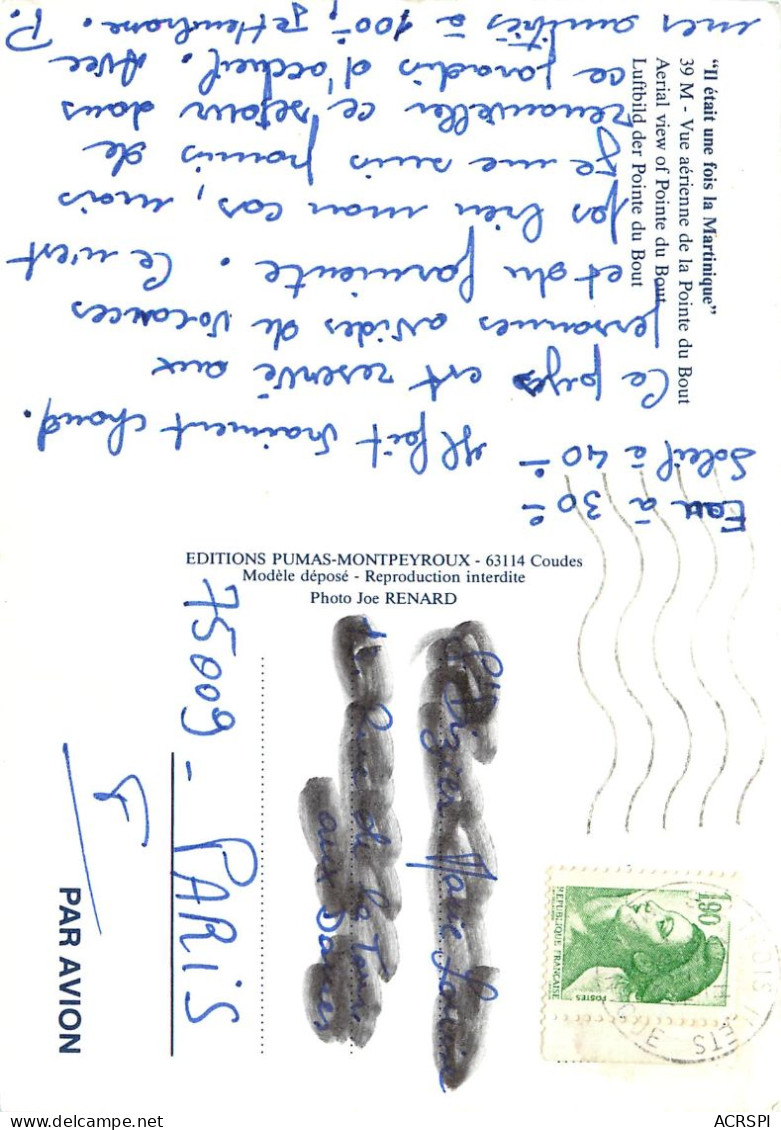 "Il était une fois la Martinique"
39 M - Vue aérienne de la Pointe du Bout
Aerial view of Pointe du Bout
Luftbild der Pointe du Bout
Eau à 30°
Soleil à 40° Il fait vraiment chaud.
Ce pays est reservé aux
personnes avides de vacances
et du farniente. Ce n'est
pas bien mon cas, mais
je me suis promis de
renouveller ce séjour dans
ce paradis d'accueil. Avec
mes amitiés à 100%,
EDITIONS PUMAS-MONTPEYROUX - 63114 Coudes
Modèle déposé - Reproduction interdite
Photo Joe RENARD
75009 - PARIS
PAR AVION
1,90
REPUBLIQUE FRANÇAISE
POSTES
OIS ILETS
ACRSPI